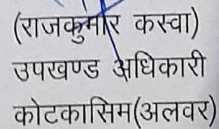 (राजकुमार कस्वा)
उपखण्ड अधिकारी
कोटकासिम(अलवर)